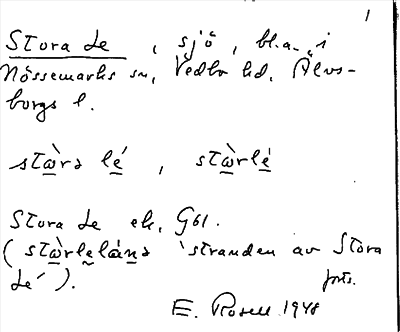 1
Stora Le, sjö, bl.a. i
Nössemarks sn, Vedbo hd, Älvs-
borgs l.
stæ̀rə lé, stæ̀rlé
Stora Le ek. G61.
(stæ̀rleláǹə 'stranden av Stora
Le').
forts.
E. Rosell 1948